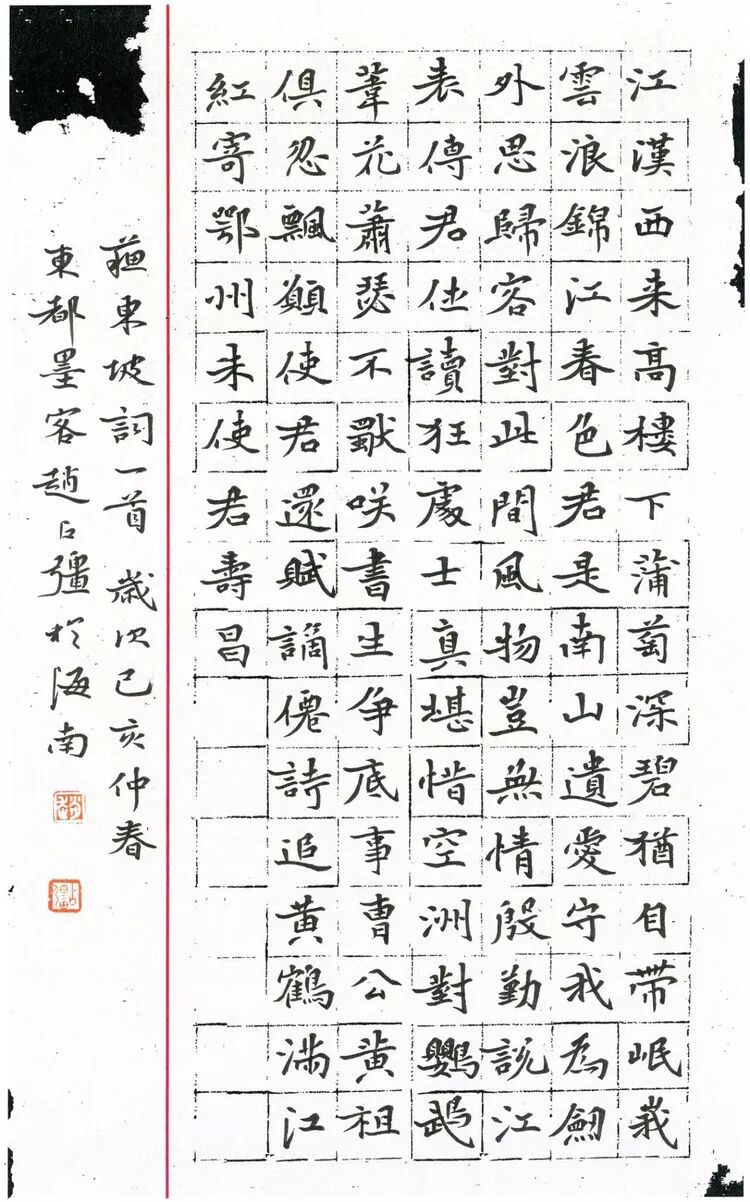 江漢西来高樓下蒲萄深碧猶自帶岷峩
雲浪錦江春色君是南山遺愛守我為劒
外思歸客對此間風物豈無情殷勤説江
表傳君休讀狂處士真堪惜空洲對鸚鵡
葦花蕭瑟不獸咲書生争底事曹公黄祖
俱忽飄願使君還賦謫僊詩追黄鶴滿江
紅寄鄂州朱使君壽昌
蘇東坡詞一首 歲次己亥仲春
東都墨客趙占彊於海南